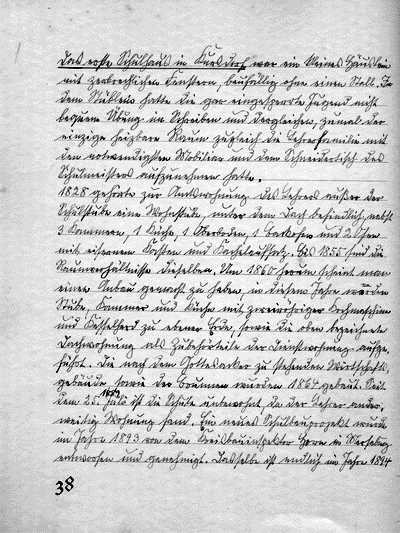 Das erste Schulhaus in Kursdorf war ein kleines Häuslein
mit zerbrechlichen Fenstern, baufällig ohne einen Stall. In
dem Stüblein hatte die gar eingesperrte Jugend nicht
bequeme Übung im Schreiben und dergleichen, zumal der
einzige heizbare Raum zugleich die Lehrerfamilie mit
den notwendigsten Mobilien und dem Schneidertisch des
Schulmeisters aufzunehmen hatte.
1828 gehörte zur Amtswohnung des Lehrers außer der
Schulstube eine Wohnstube, unter dem Dach befindlich, nebst
3 Kammern, 1 Küche, 1 Oberboden, 1 Backofen und 2 Öfen
mit eisernem Kasten und Kachelaufsatz. Bis 1855 sind die
Raumverhältnisse dieselben. Um 1860 herum scheint man
einen Anbau gemacht zu haben, in diesem Jahre werden
Stube, Kammer und Küche mit zweiröhriger Kochmaschine
und Kesselherd zu ebener Erde, sowie die oben bezeichnete
Dachwohnung als Zubehörteile der Dienstwohnung aufge-
führt. Die nach dem Gottesacker zu stehenden Wirtschafts-
gebäude, sowie der Brunnen wurden 1864 gebaut. Seit
dem 25. Juli ist die Schule unbewohnt, da der Lehrer ander-
weitig Wohnung fand. Ein neues Schulbauprojekt wurde
im Jahre 1893 von dem Kreisbauinspektor Horn in Merseburg
entworfen und genehmigt. Dasselbe ist endlich im Jahre 1894
38